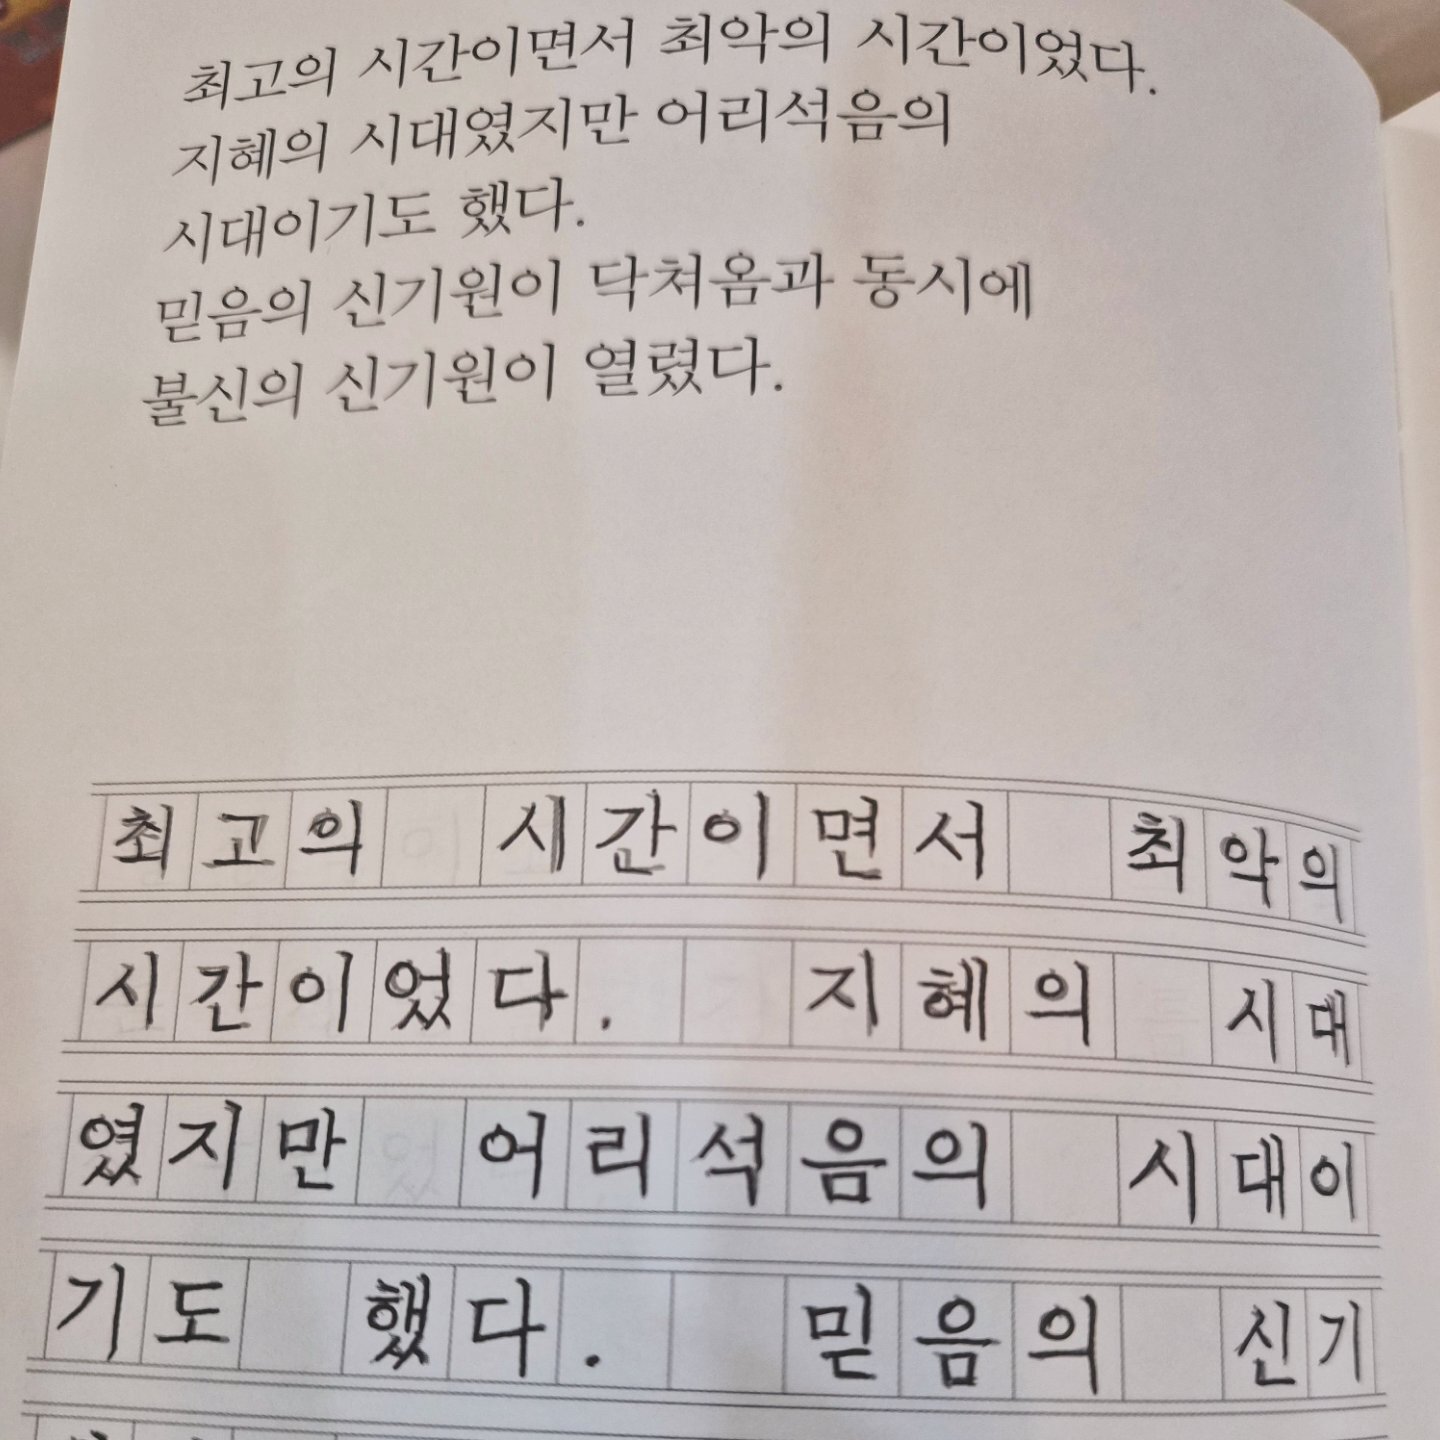 최고의 시간이면서 최악의 시간이었다.
지혜의 시대였지만 어리석음의
시대이기도 했다.
믿음의 신기원이 닥쳐옴과 동시에
불신의 신기원이 열렸다.
최고의 시간이면서 최악의
시간이었다. 지혜의 시대
였지만 어리석음의 시대이
기도 했다. 믿음의 신기